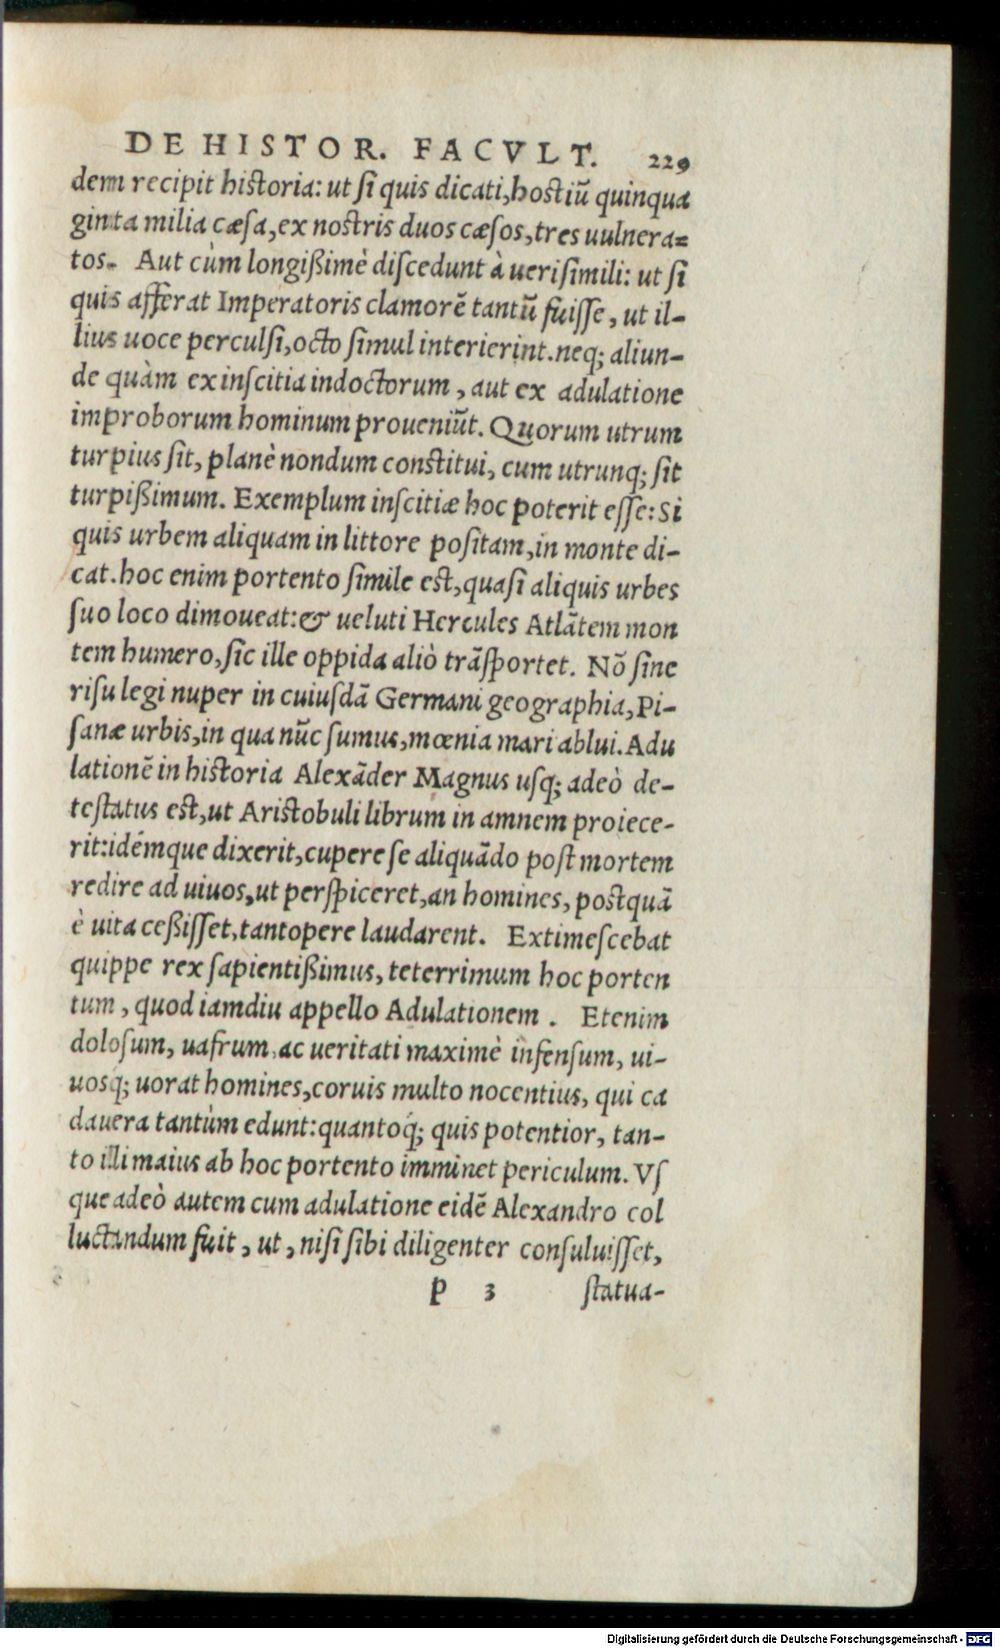 DE HISTOR. FACVLT. 229
dem recipit historia: ut si quis dicati, hostiũ quinqua
ginta milia cæsa, ex nostris duos cæsos, tres uulnera=
tos. Aut cùm longißimè discedunt à uerisimili: ut si
quis afferat Imperatoris clamorẽ tantũ fuisse, ut il-
lius uoce perculsi, octo simul interierint. neq; aliun-
de quàm ex inscitia indoctorum, aut ex adulatione
improborum hominum proueniũt. Quorum utrum
turpius sit, planè nondum constitui, cum utrunq; sit
turpißimum. Exemplum inscitiæ hoc poterit esse: Si
quis urbem aliquam in littore positam, in monte di-
cat. hoc enim portento simile est, quasi aliquis urbes
suo loco dimoueat: & ueluti Hercules Atlãtem mon
tem humero, sic ille oppida aliò trãsportet. Nõ sine
risu legi nuper in cuiusdã Germani geographia, Pi-
sanæ urbis, in qua nũc sumus, mœnia mari ablui. Adu
lationẽ in historia Alexãder Magnus usq; adeò de-
testatus est, ut Aristobuli librum in amnem proiece-
rit: idémque dixerit, cupere se aliquãdo post mortem
redire ad uiuos, ut perspiceret, an homines, postquã
è uita ceßisset, tantopere laudarent. Extimescebat
quippe rex sapientißimus, teterrimum hoc porten
tum, quod iamdiu appello Adulationem. Etenim
dolosum, uafrum, ac ueritati maximè infensum, ui-
uosq; uorat homines, coruis multo nocentius, qui ca
dauera tantùm edunt: quantoq́; quis potentior, tan-
to illi maius ab hoc portento imminet periculum. Vs
que adeò autem cum adulatione eidẽ Alexandro col
luctandum fuit, ut, nisi sibi diligenter consuluisset,
p 3 statua-
Digitalisierung gefördert durch die Deutsche Forschungsgemeinschaft - DFG